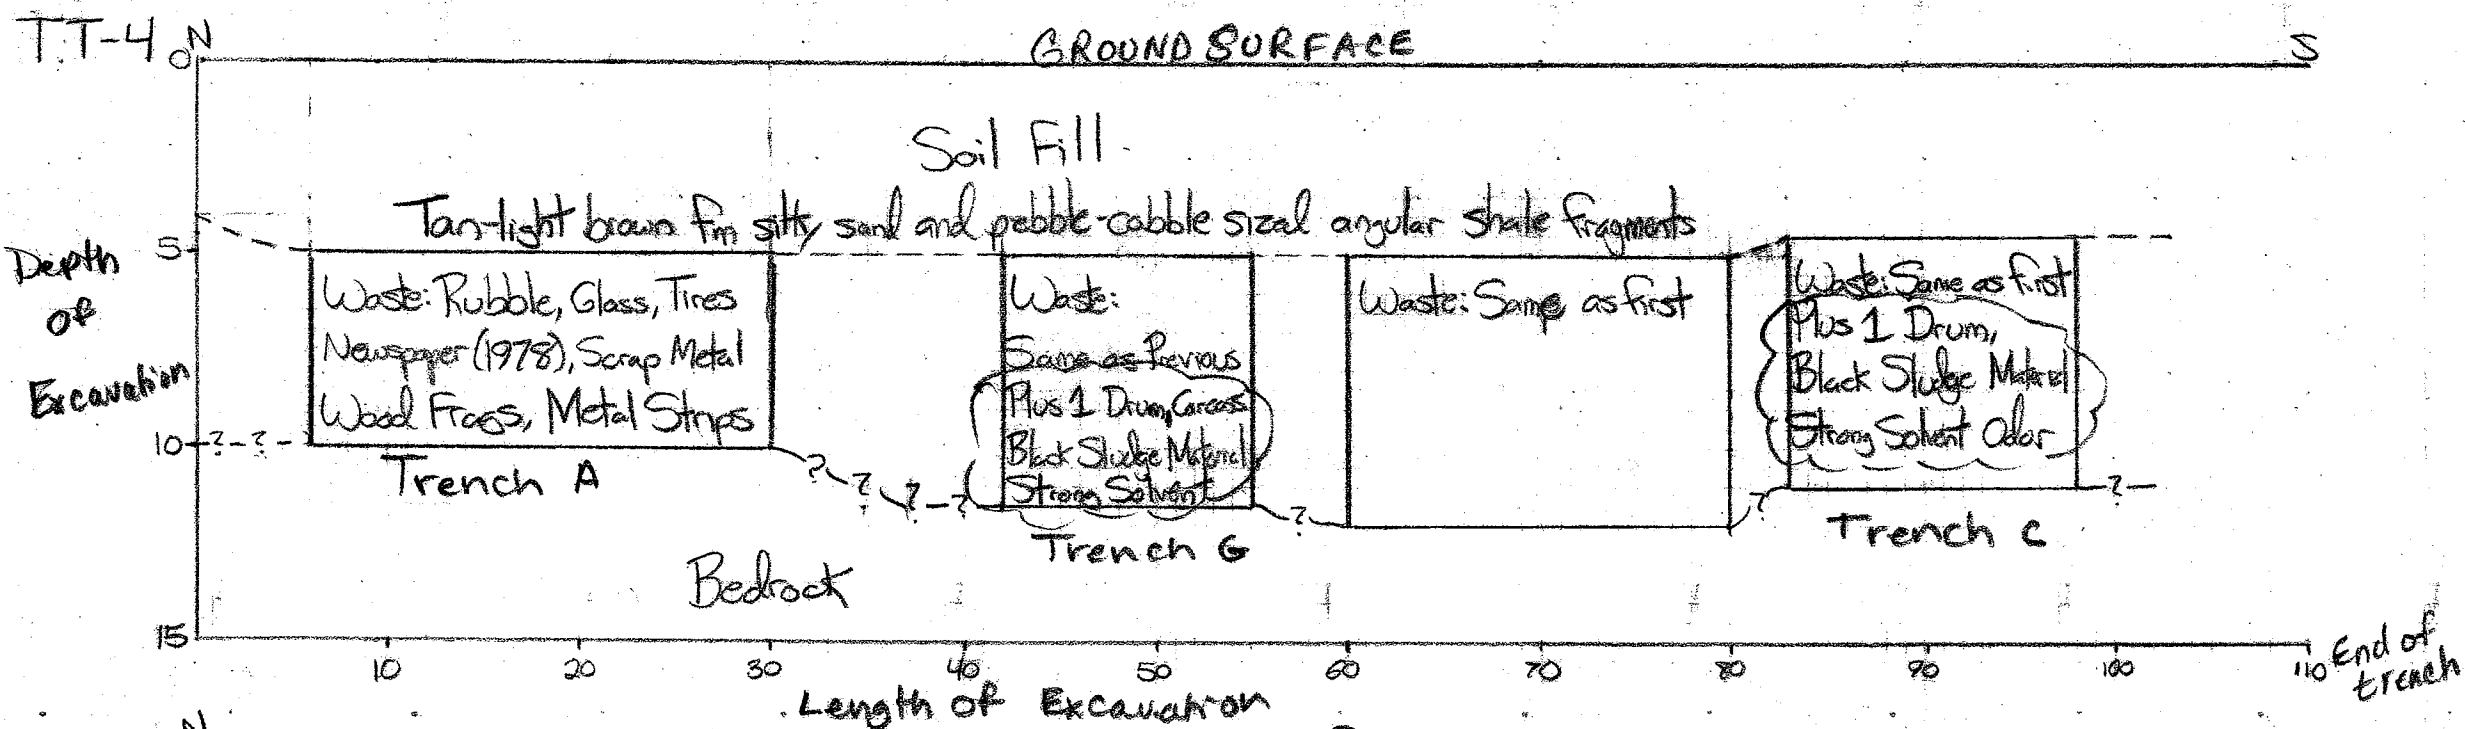 TT-4
N
GROUND SURFACE
S
0
Soil Fill
Tan-light brown fm silty sand and pebble-cobble sized angular shale fragments
5
Depth
of
Excavation
10
15
Waste: Rubble, Glass, Tires
Newspaper (1978), Scrap Metal
Wood Frags, Metal Strips
Trench A
Waste:
Same as Previous
Plus 1 Drum, Carcass
Black Sludge Material
Strong Solvent
Trench G
Waste: Same as first
Waste: Same as first
Plus 1 Drum,
Black Sludge Material
Strong Solvent Odor
Trench C
? - ?
? ? ? - ?
?
?
?
Bedrock
10 20 30 40 50 60 70 80 90 100 110
End of
trench
Length of Excavation
N